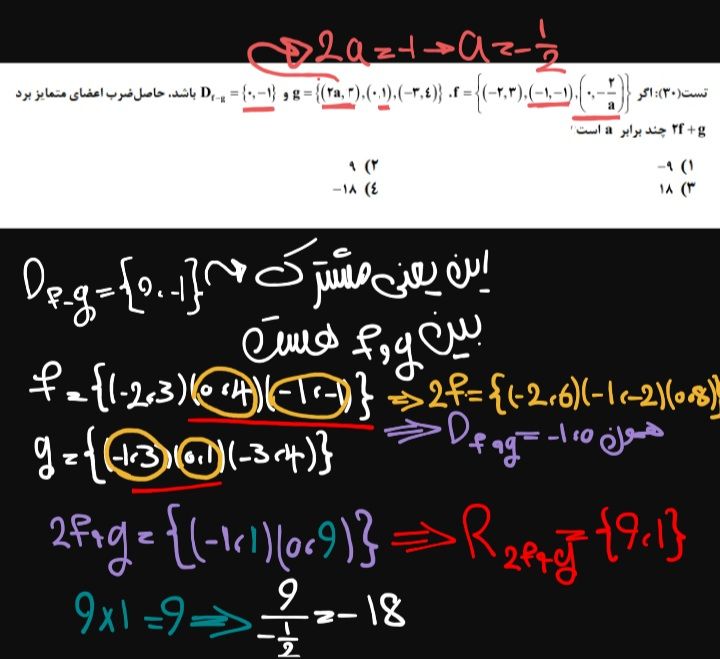 2a = -1 → a = -1/2
تست(۳۰): اگر f = {(-۲,۳),(-۱,-۱),(۰,-۲/a)}، g = {(۲a,۳),(۰,۱),(-۳,٤)} و D_{f-g} = {۰,-۱} باشد، حاصل‌ضرب اعضای متمایز برد
۲f + g چند برابر a است؟
۱) -۹
۲) ۹
۳) ۱۸
٤) -۱۸
D_{f-g} = {0,-1} این یعنی مشترک
بین f و g هست
f = {(-2,3)(0,4)(-1,-1)} ⇒ 2f = {(-2,6)(-1,-2)(0,8)}
g = {(-1,3)(0,1)(-3,4)} ⇒ D_{f و g} = -1,0 همون
2f+g = {(-1,1)(0,9)} ⇒ R_{2f+g} = {9,1}
9×1=9 ⇒ 9/(-1/2) = -18